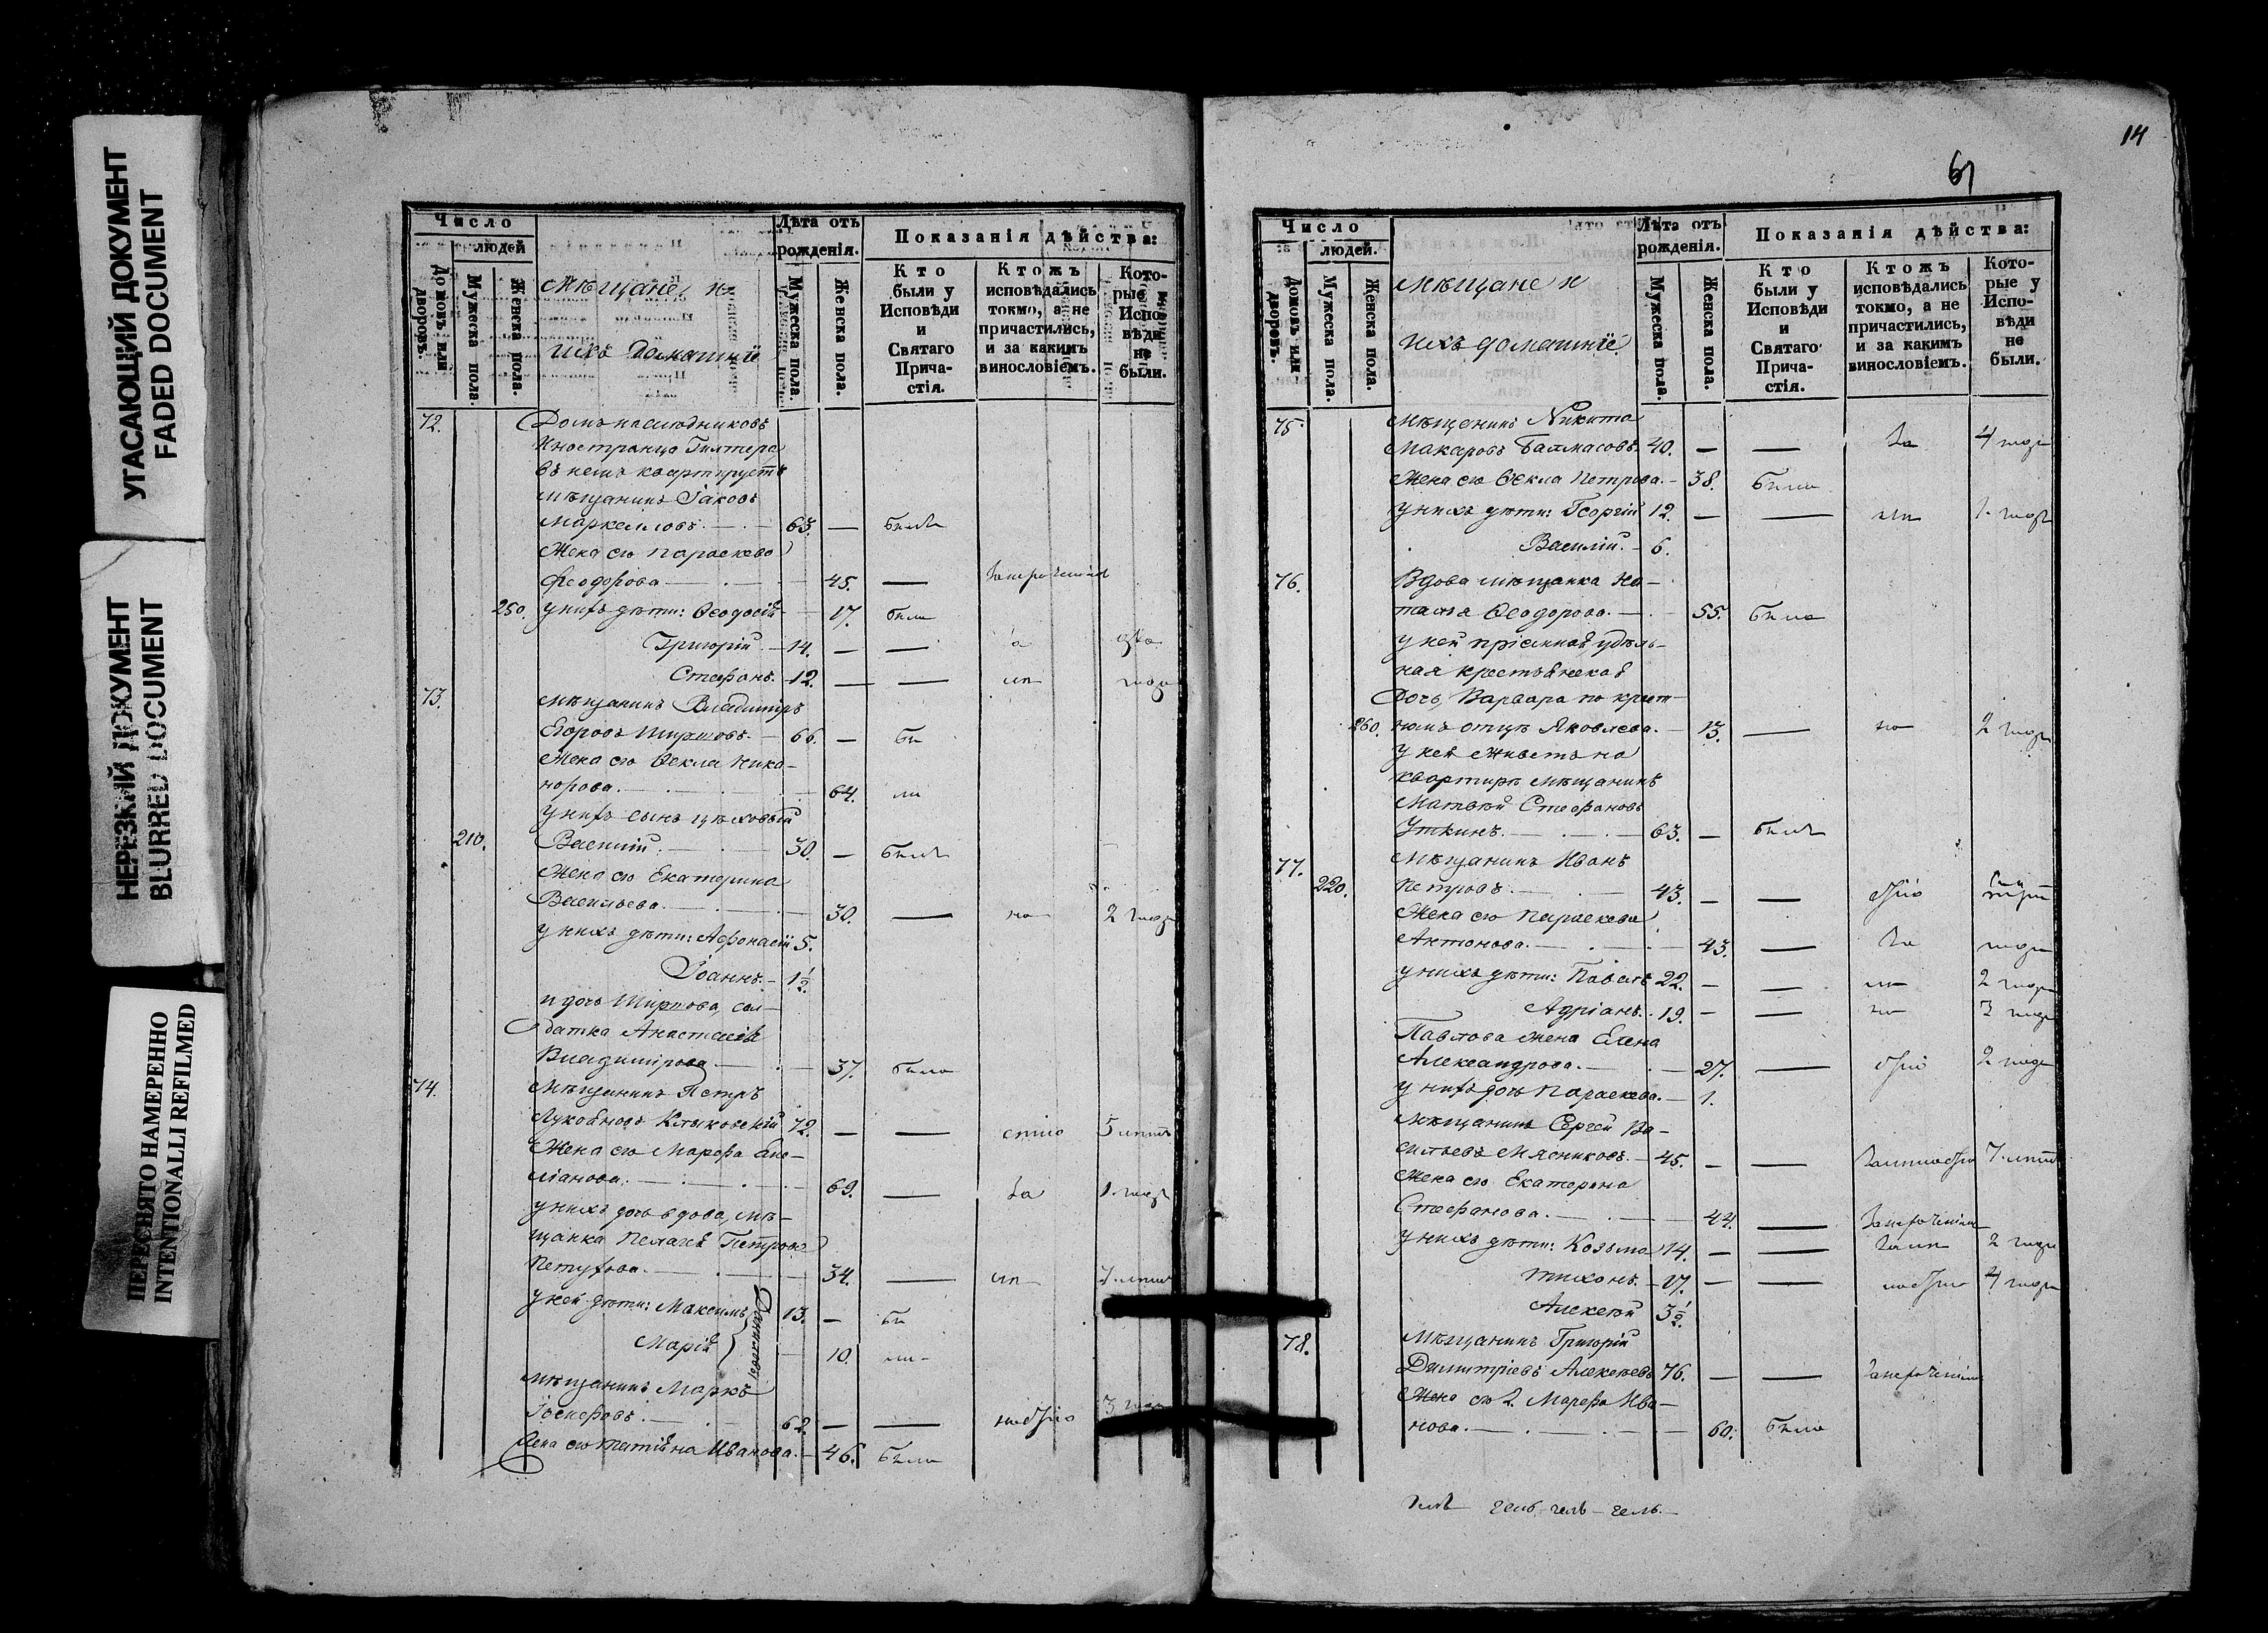 УГАСАЮЩИЙ ДОКУМЕНТ
FADED DOCUMENT
НЕРЕЗКИЙ ДОКУМЕНТ
BLURRED DOCUMENT
ПЕРЕСНЯТО НАМЕРЕННО
INTENTIONALLI REFILMED
Число
людей
Домовъ или дворовъ.
Мужеска пола.
Женска пола.
Мѣщане и
ихъ домашнїе
Лѣта отъ рожденія.
Мужеска пола.
Женска пола.
Показанія дѣйства:
Кто были у Исповѣди и Святаго Прича-стія.
Ктожъ исповѣдались токмо, а не причастились, и за какимъ винословіемъ.
Кото-рые у Испо-вѣди не были.
72. Домъ наслѣдниковъ
Иностранца
въ немъ квартируетъ
мѣщанинъ Іаковъ
Маркелловъ. 63. — былъ
Жена его Параскева
Феодорова 45. —
250. у нихъ дѣти: Ѳеодосія 17. была
Григорій. 14. — —
Стефанъ. 12. — —
73. Мѣщанинъ Владиміръ
Егоровъ 66. — бы
Жена его Ѳекла Ника-
норова. 64. ли
у нихъ сынъ цѣховый
210. Василій. 30. — былъ
Жена его Екатерина
Васильева. 30. — 2 года
у нихъ дѣти: Аѳонасій 5.
Іоаннъ. 1½.
и дочь сол-
датка Анастасія
Владимірова. 37. была
74. Мѣщанинъ Петръ
72. — — 5 лѣтъ
Жена его Марѳа Еме-
ліанова. 69. — 1. годъ
у нихъ дочь вдова, мѣ-
щанка Пелагея Петрова
Петухова. 34. —
у ней дѣти: Максимъ 13. — бы
Марія 10. ли
мѣщанинъ Маркъ
Іосифовъ. 62. — —
Жена его Татіяна Иванова. 46. была
14
61
Число
людей.
Домовъ или дворовъ.
Мужеска пола.
Женска пола.
Мѣщане и
ихъ домашнїе.
Лѣта отъ рожденія.
Мужеска пола.
Женска пола.
Показанія дѣйства:
Кто были у Исповѣди и Святаго Прича-стія.
Ктожъ исповѣдались токмо, а не причастились, и за какимъ винословіемъ.
Кото-рые у Испо-вѣди не были.
75. Мѣщанинъ Никита
Макаровъ Балмасовъ. 40. — — 4 года
Жена его Ѳекла Петрова. 38. была
у нихъ дѣти: Георгій 12. — — 1. годъ
Василій. 6.
76. Вдова мѣщанка На-
талья Ѳеодорова. 55. была
у ней пріемная удѣль-
ная крестьянская
дочь, Варвара по крест-
260. номъ отцѣ Яковлева. 13. — 2 года
у ней живетъ на
квартирѣ мѣщанинъ
Матвѣй Стефановъ
Уткинъ. 63. — былъ
77. Мѣщанинъ Иванъ
220. Петровъ. 43. — —
Жена его Параскева
Антонова. 43. —
у нихъ дѣти: Павелъ 22. — — 2 года
Адріанъ. 19. — —
Павлова жена Елена
Александрова. 27. — 2 года
у нихъ дочь Параскева. 1.
Мѣщанинъ Сергей Ва-
сильевъ Мясниковъ. 45. — — 7 лѣтъ
Жена его Екатерина
Стефанова. 44. —
у нихъ дѣти: Козьма 14. — — 2 года
Тихонъ. 17. — — 4 года
Алексѣй 3½.
78. Мѣщанинъ Григорій
Димитріевъ Алексѣевъ 76. — —
Жена его 2. Марѳа Ива-
нова. 60. была